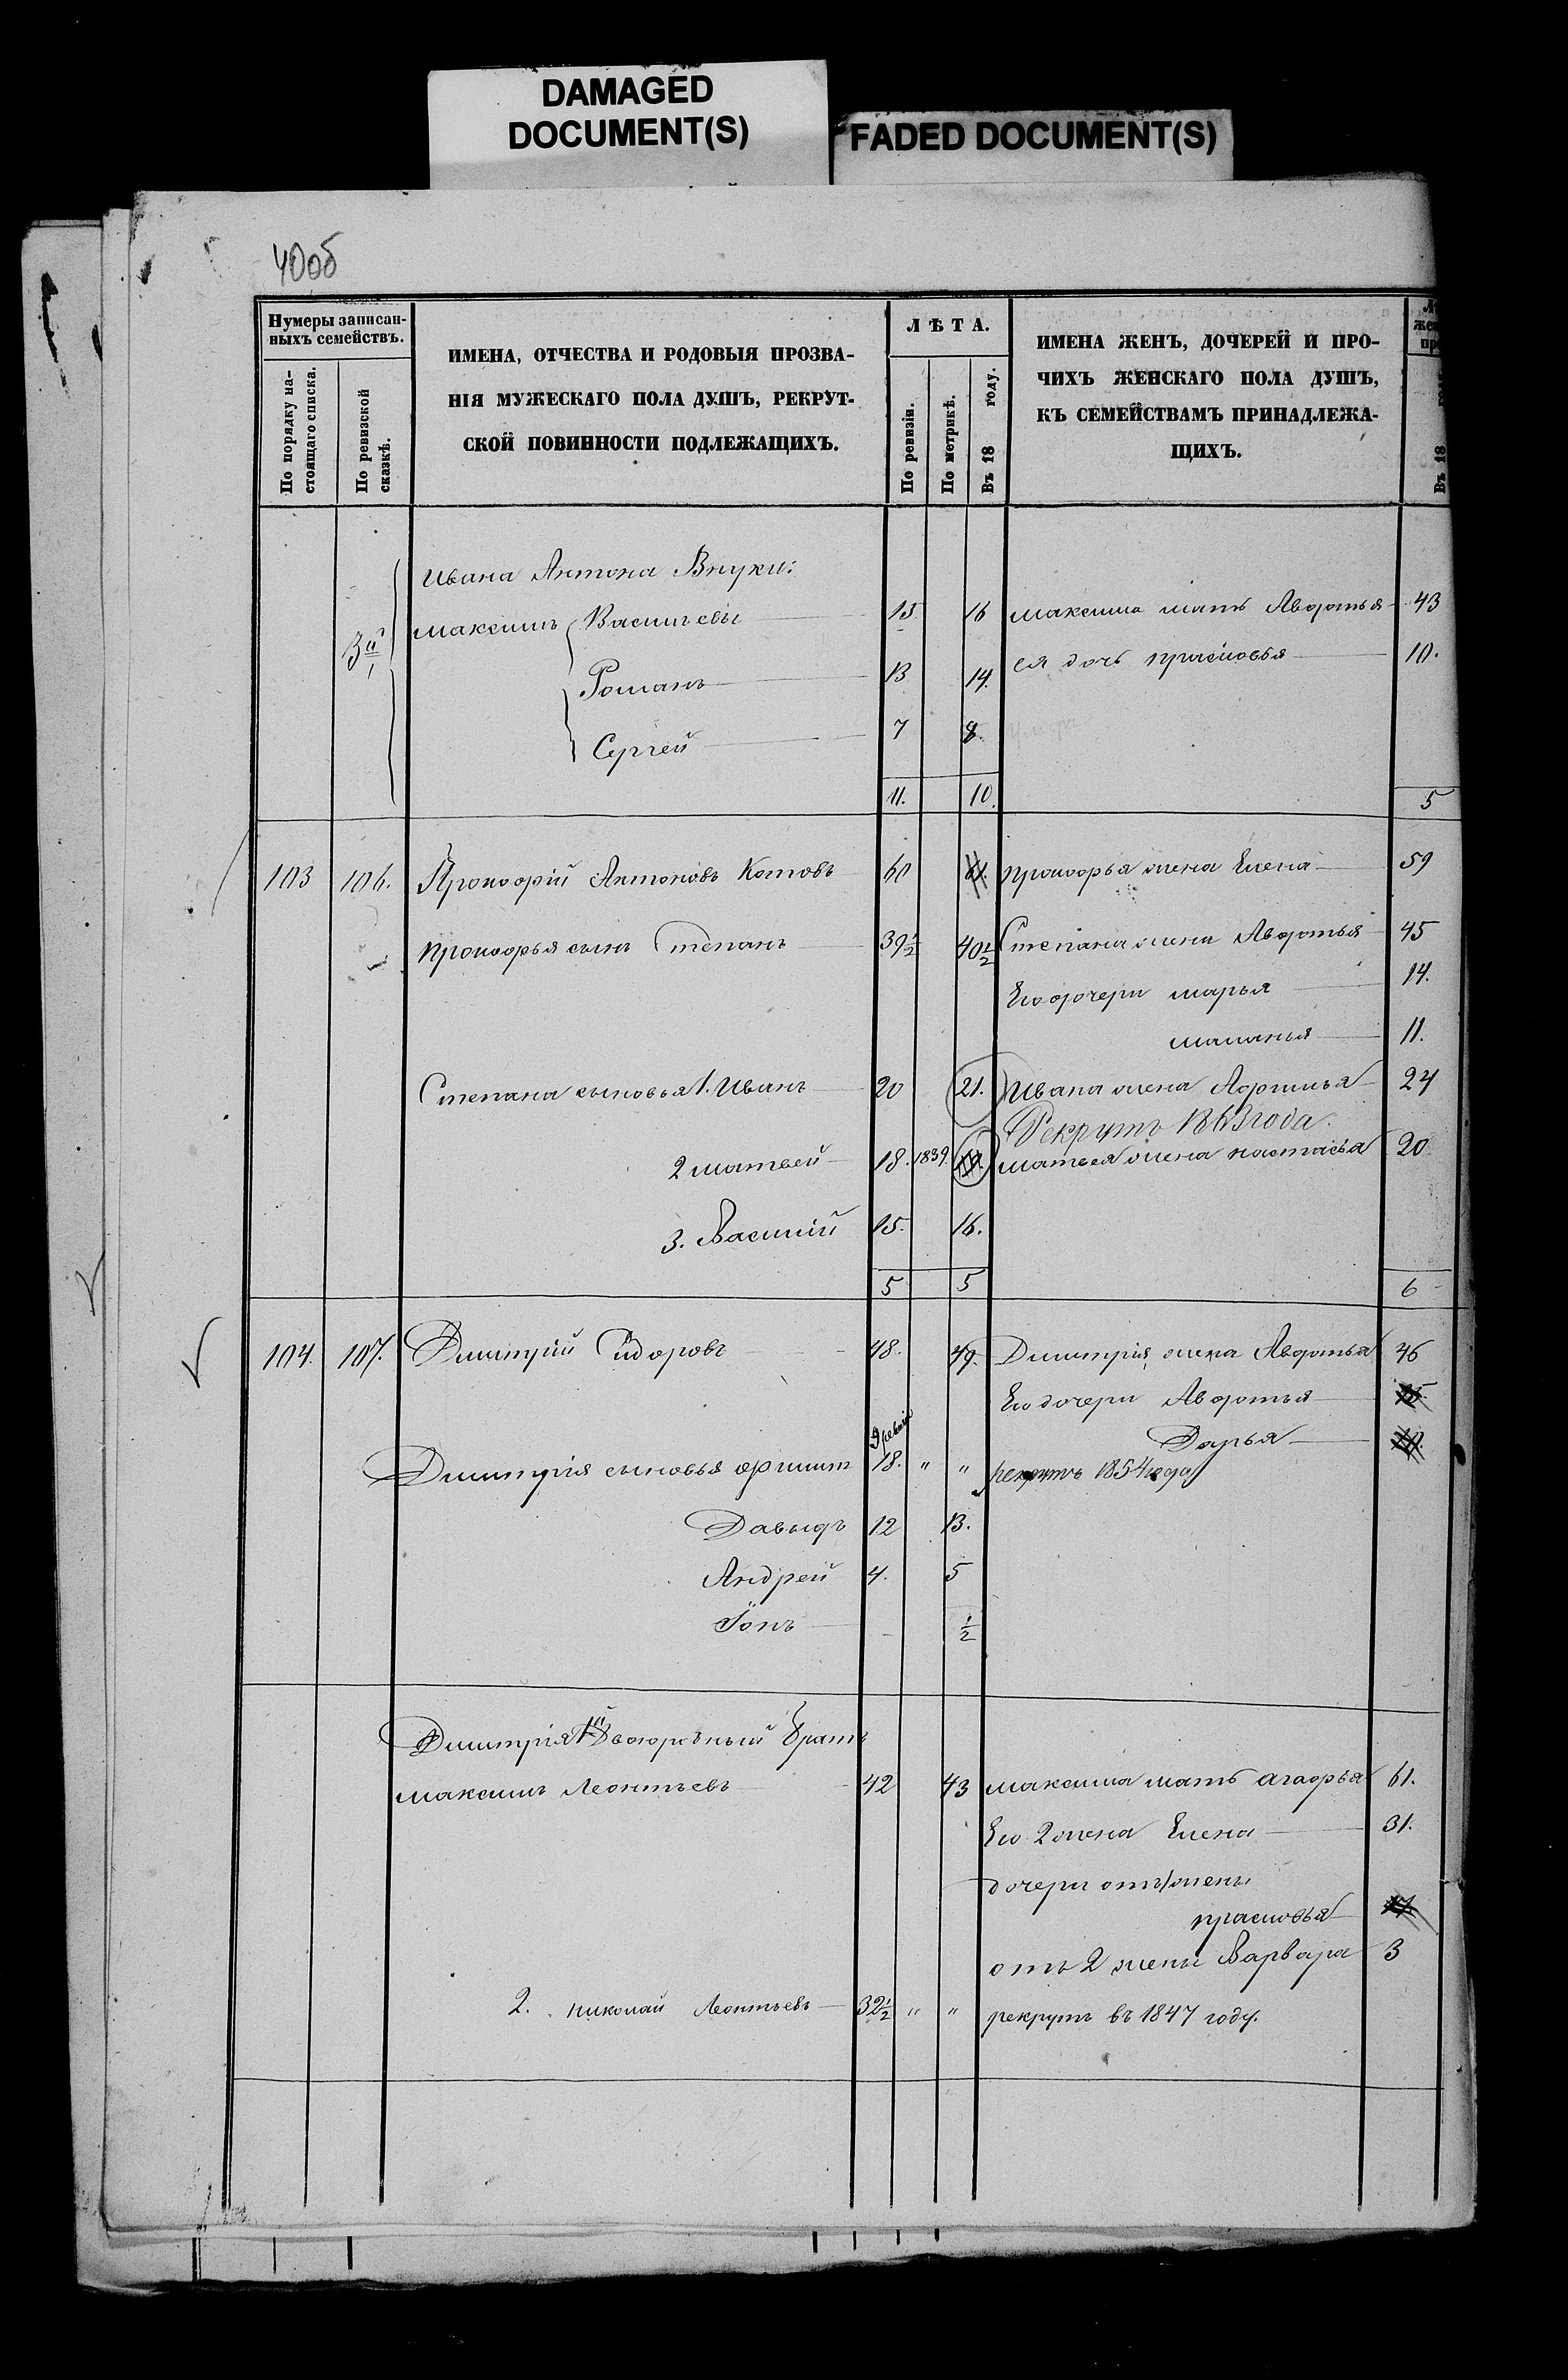 DAMAGED
DOCUMENT(S)
FADED DOCUMENT(S)
40об
Нумеры записан-
ныхъ семействъ.
По порядку на-
стоящаго списка.
По ревизской
сказкѣ.
ИМЕНА, ОТЧЕСТВА И РОДОВЫЯ ПРОЗВА-
НІЯ МУЖЕСКАГО ПОЛА ДУШЪ, РЕКРУТ-
СКОЙ ПОВИННОСТИ ПОДЛЕЖАЩИХЪ.
ЛѢТА.
По ревизіи.
По метрикѣ.
Въ 18 году.
ИМЕНА ЖЕНЪ, ДОЧЕРЕЙ И ПРО-
ЧИХЪ ЖЕНСКАГО ПОЛА ДУШЪ,
КЪ СЕМЕЙСТВАМЪ ПРИНАДЛЕЖА-
ЩИХЪ.
Въ 18
Ивана Антона Внуки:
Максимъ Васильевы 15 16 максима мать Авдотья 43
ея дочь прасковья 10.
Романъ 13 14.
Сергей 7 8.
11. 10. 5
103 106. Прокофій Антоновъ Котовъ 60 61. прокофья жена Елена 59
прокофья сынъ Степанъ 39½ 40½ Степана жена Авдотья 45
Его дочери марья 14.
маланья 11.
Степана сыновья 1. Иванъ 20 21. Ивана жена Афимья 24
Рекрутъ 1863 года.
2 матвей 18. 1839. 19. матвея жена настасья 20
3. Василій 15. 16.
5 5 6
104. 107. Дмитрій Сидоровъ 48. 49. Дмитрія жена Авдотья 46
Его дочери Авдотья
Дарья
Дмитрія сыновья 18. " " рекрутъ 1854 года
Давыдъ 12 13.
Андрей 4. 5
Іонъ - ½
Дмитрія 1й Двоюродный братъ
максимъ Леонтьевъ 42 43 максима мать агафья 61.
Его 2 жена Елена 31.
дочери отъ 1 жены
прасковья
отъ 2 жены Варвара 3
2. николай Леонтьевъ 32½ " " рекрутъ въ 1847 году.